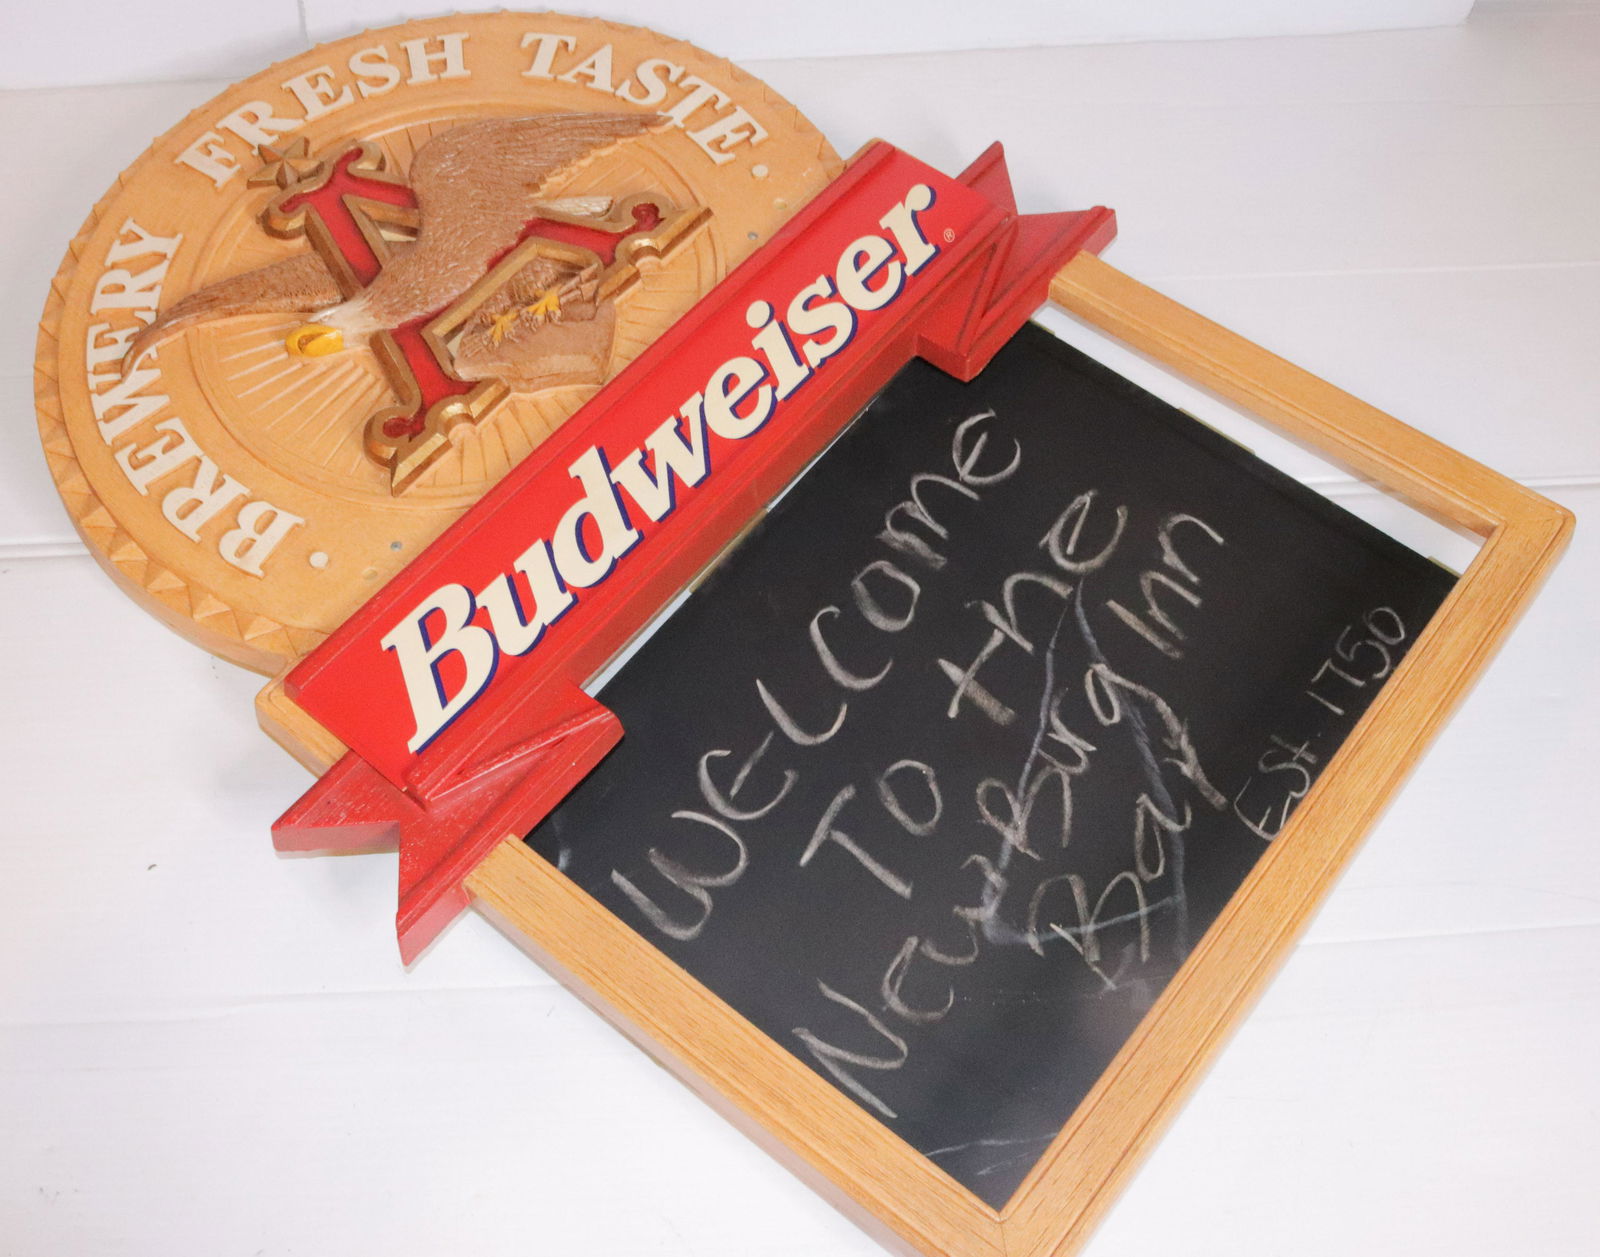 · BREWERY FRESH TASTE ·
Budweiser®
WELCOME
TO the
NewBurg Inn
Bar
Est. 1750